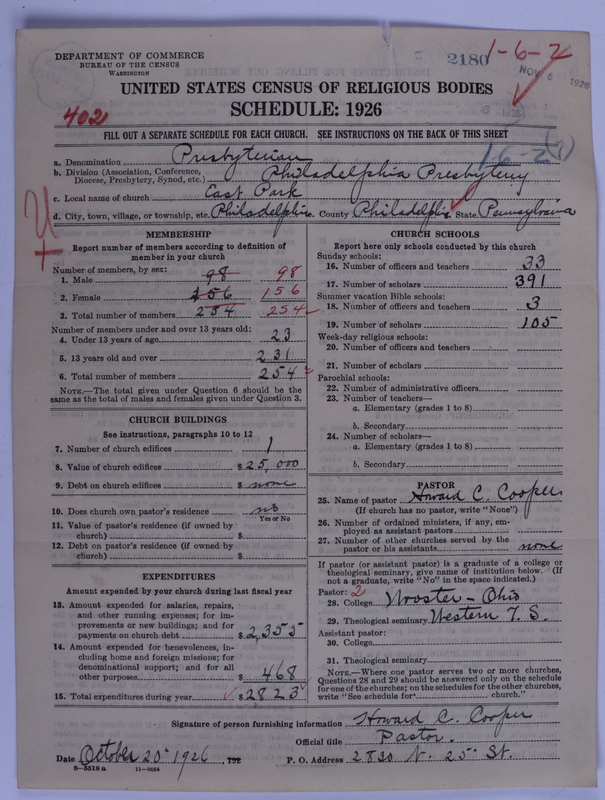 DEPARTMENT OF COMMERCE
BUREAU OF THE CENSUS
WASHINGTON
2180
1-6-2
NOV 6 1926
UNITED STATES CENSUS OF RELIGIOUS BODIES
SCHEDULE: 1926
402
FILL OUT A SEPARATE SCHEDULE FOR EACH CHURCH. SEE INSTRUCTIONS ON THE BACK OF THIS SHEET
1-6-2
a. Denomination Presbyterian
b. Division (Association, Conference, Diocese, Presbytery, Synod, etc.) Philadelphia Presbytery
c. Local name of church East Park
d. City, town, village, or township, etc. Philadelphia e. County Philadelphia State Pennsylvania
MEMBERSHIP
Report number of members according to definition of
member in your church
Number of members, by sex:
1. Male 98 98
2. Female 156 156
3. Total number of members 254 254
Number of members under and over 13 years old:
4. Under 13 years of age 23
5. 13 years old and over 231
6. Total number of members 254
NOTE.—The total given under Question 6 should be
same as the total of males and females given under Question 3.
CHURCH BUILDINGS
See instructions, paragraphs 10 to 12
7. Number of church edifices 1
8. Value of church edifices $ 25,000
9. Debt on church edifices $ none
10. Does church own pastor's residence? no
Yes or No
11. Value of pastor's residence (if owned by
church) $
12. Debt on pastor's residence (if owned by
church) $
EXPENDITURES
Amount expended by your church during last fiscal year
13. Amount expended for salaries, repairs,
and other running expenses; for im-
provements or new buildings; and for
payments on church debt $ 2,355
14. Amount expended for benevolences, in-
cluding home and foreign missions; for
denominational support; and for all
other purposes $ 468
15. Total expenditures during year $ 2823
CHURCH SCHOOLS
Report here only schools conducted by this church
Sunday schools:
16. Number of officers and teachers 33
17. Number of scholars 391
Summer vacation Bible schools:
18. Number of officers and teachers 3
19. Number of scholars 105
Week-day religious schools:
20. Number of officers and teachers
21. Number of scholars
Parochial schools:
22. Number of administrative officers
23. Number of teachers—
a. Elementary (grades 1 to 8)
b. Secondary
24. Number of scholars—
a. Elementary (grades 1 to 8)
b. Secondary
PASTOR
25. Name of pastor Howard C. Cooper
(If church has no pastor, write "None")
26. Number of ordained ministers, if any, em-
ployed as assistant pastors
27. Number of other churches served by the
pastor or his assistants none
If pastor (or assistant pastor) is a graduate of a college or
theological seminary, give name of institution below. (If
not a graduate, write "No" in the space indicated.)
Pastor: 2
28. College Wooster - Ohio
29. Theological seminary Western T. S.
Assistant pastor:
30. College
31. Theological seminary
NOTE.—Where one pastor serves two or more churches,
Questions 28 and 29 should be answered only on the schedule
for one of the churches; on the schedules for the other churches,
write "See schedule for church."
Signature of person furnishing information Howard C. Cooper
Official title Pastor.
Date October 20 1926, 192
P. O. Address 2830 N. 25 St.
8—5518 a 11—9654